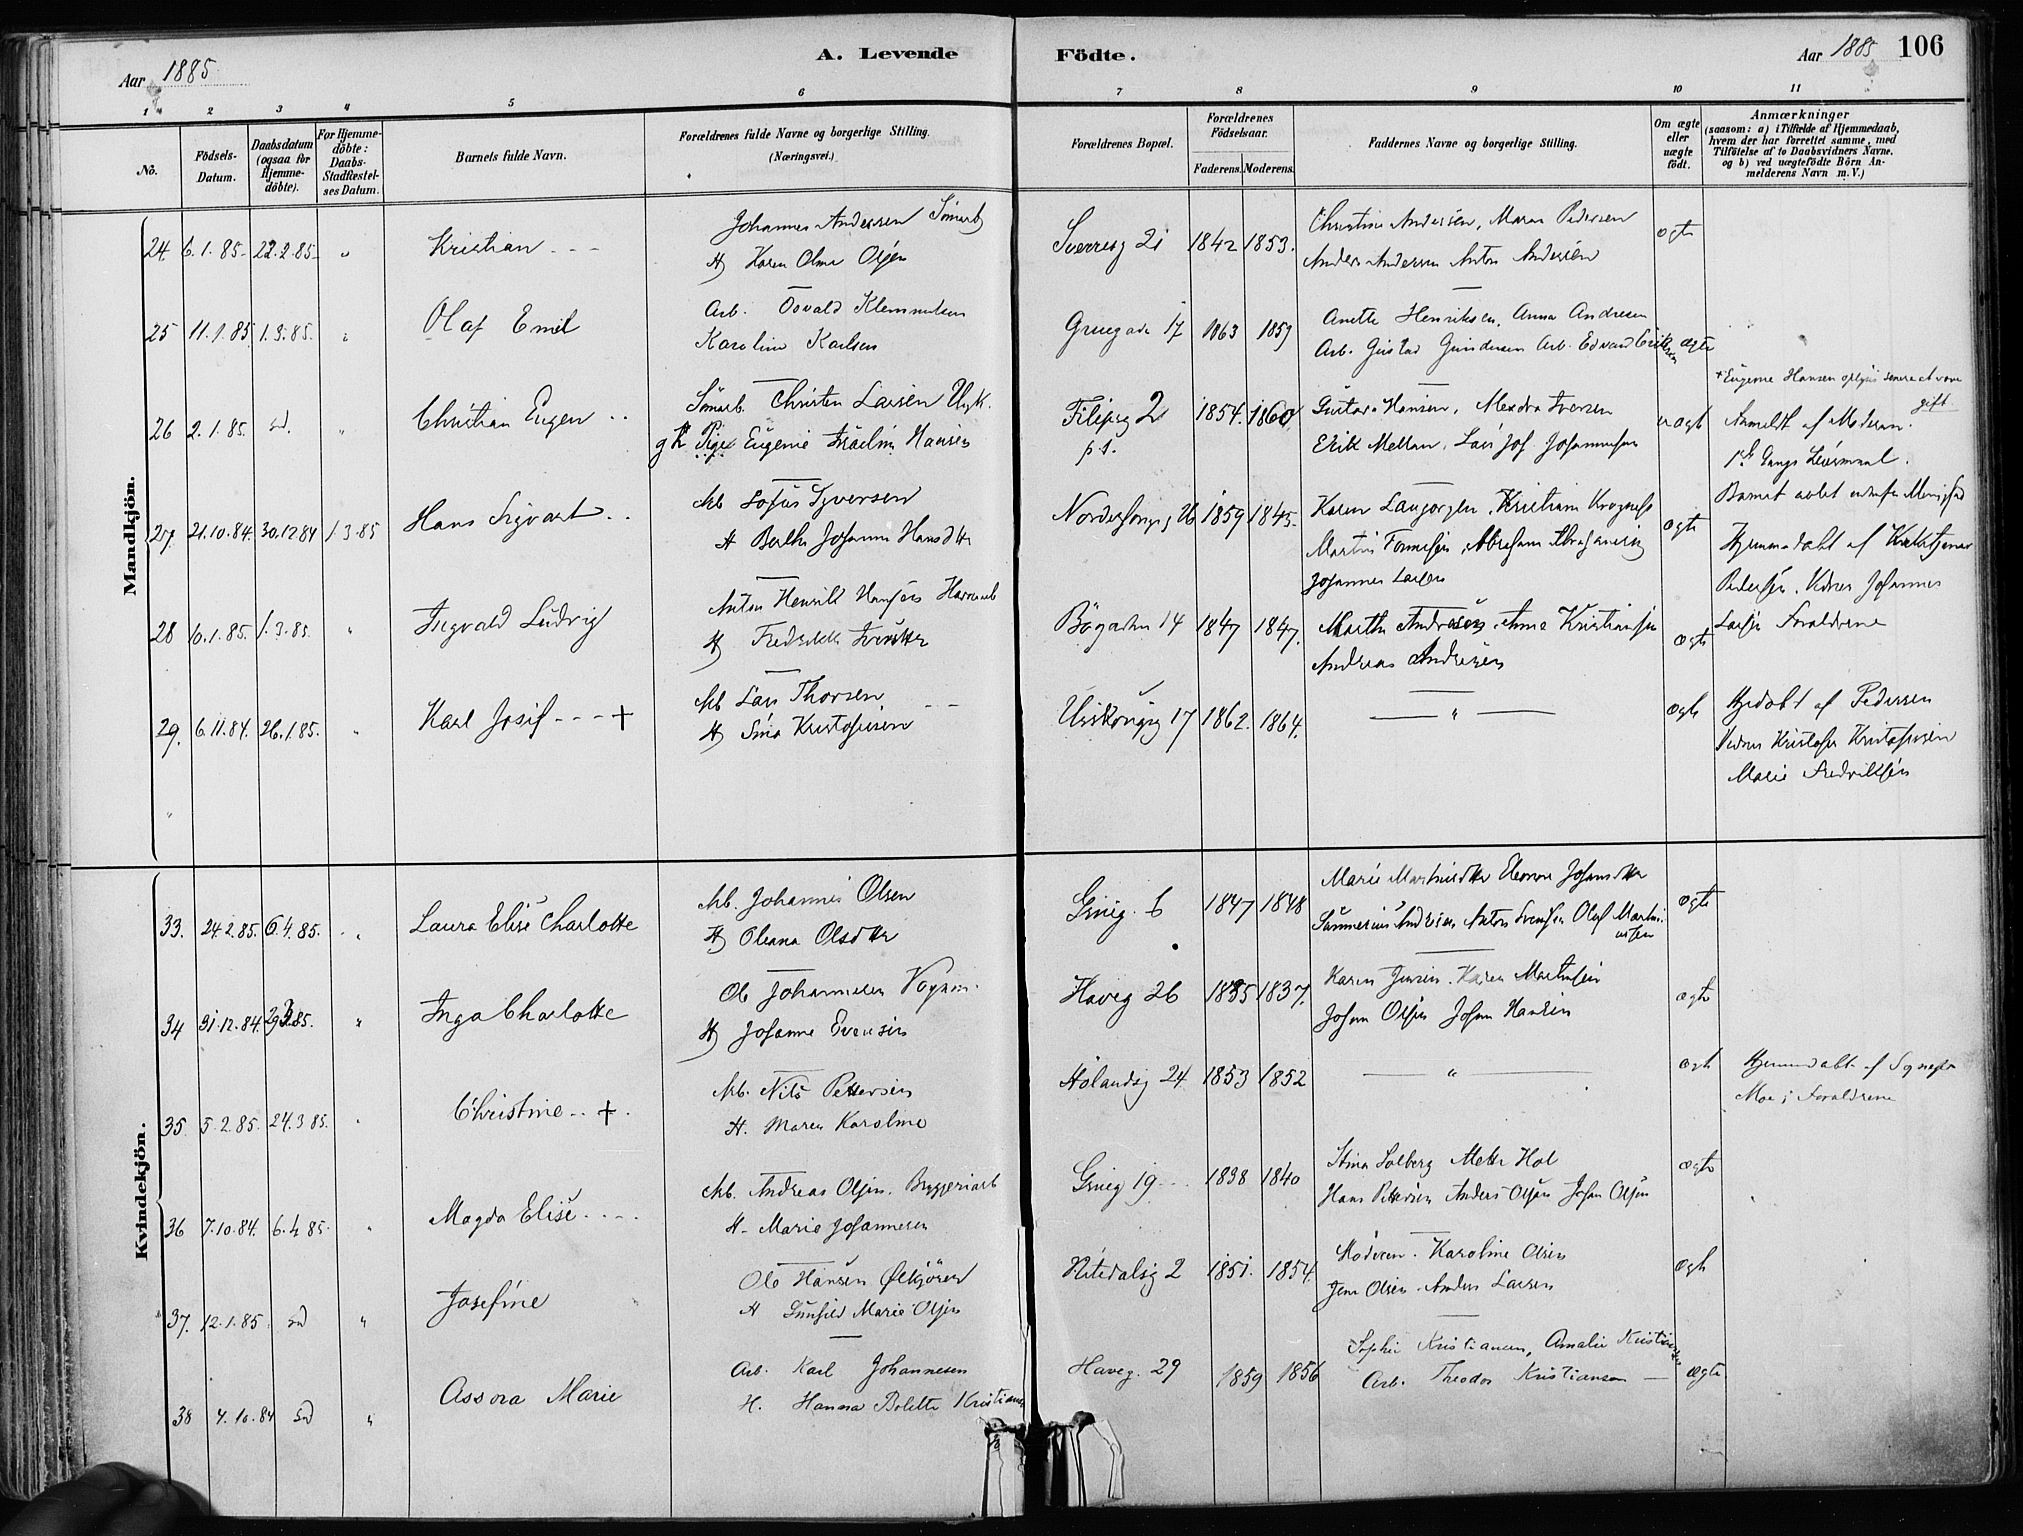 Aar 1885
A. Levende
Födte.
Aar 1885 106
1 2 3 4 5 6 7 8 9 10 11
No.
Födsels-
Datum.
Daabsdatum
(ogsaa for
Hjemme-
döbte).
For Hjemme-
döbte:
Daabs-
Stadfæstel-
ses Datum.
Barnets fulde Navn.
Forældrenes fulde Navne og borgerlige Stilling.
(Næringsvei.)
Forældrenes Bopæl.
Forældrenes
Födselsaar.
Faderens. Moderens.
Faddernes Navne og borgerlige Stilling.
Om ægte
eller
uægte
födt.
Anmærkninger
(saasom: a) i Tilfælde af Hjemmedaab,
hvem der har forrettet samme, med
Tilföielse af to Daabsvidners Navne,
og b) ved uægtefödte Börn An-
melderens Navn m. V.)
Mandkjön.
24. 6.1.85. 22.2.85. " Kristian
Johannes Andersen
Karen Olsen
Sverresg 21 1842 1853.
Christine Andersen, Maren Pedersen
Anders Andersen Anton Andersen
ægte
25 11.1.85. 1.3.85. " Olaf Emil
Arb. Osvald Klemmetsen
Karoline Karlsen
Gruegade 17 1863 1859
Anette Henriksen, Anna Andresen
Arb. Gustad Gundersen Arb. Edvard Eriksen
ægte
26 2.1.85. sd. " Christian Eugen
Christen Larsen Ungk.
Pige Eugenie Hansen
Filipsg 2 1854. 1860.
Gustava Hansen, Iversen
Erik Mellan, Lars Johannesen
uægte
Eugenie Hansen senere at være
gift
Anmeldt af Moderen.
1ste Gangs Leiermaal.
27. 21.10.84. 30.12.84 1.3.85 Hans Sigvart
Arb Sofus Syversen
H Berthe Johanne Hansdtter
26 1859 1845.
Karen Kristian
Martin Abraham
Johannes Larsen
ægte
Hjemmedøbt af
Pedersen. Vidner Johannes
Larsen Forældrene
28 6.1.85. 1.3.85. " Ingvald Ludvig
Anton Henrik Hansen
H Fredrikke
Bögaten 14 1847 1847.
Marthe Andresen Anne Kristiansen
Andreas Andresen
ægte
29. 6.11.84. 26.1.85. " Karl Josef +
Arb Lars Thorsen
H Sina Kristofersen
17 1862. 1864.
"
ægte
Hjedøbt af Pedersen
Vidner Kristofer Kristofersen
Marie Fredriksen
Kvindekjön.
33. 24.2.85. 6.4.85. " Laura Elise Charlotte
Arb. Johannes Olsen
H Oleana Olsdtter
Grueg. 6 1847 1848
Marie Eleonore Johansdtter
Andersen Anton Svensen Olaf Martini-
ussen
ægte
34 31.12.84. 29.3.85. " Inga Charlotte
Ole Johannesen Vognm.
H Johanne Evensen
Haveg 26 1835 1837.
Karen Jensen. Karen Mathisen
Johan Olsen Johan Hansen
ægte
35 5.2.85. 24.3.85. " Christine +
Arb. Nils Pettersen
H. Maren Karoline
Hölandsg 24 1853 1852
"
ægte
Hjemmedøbt af
Moe; Forældrene
36 7.10.84. 6.4.85. " Magda Elise
Arb. Andreas Olsen. Bryggeriarb
H. Marie Johannesen
Grueg 19 1838 1840
Stina Solberg Mette Hol
Hans Pettersen Anders Olsen Johan Olsen
ægte
37. 12.1.85. sd " Josefine
Ole Hansen Ølkjörer
H Gunhild Marie Olsen
Nitedalsg 2 1851. 1854.
Moderen. Karoline Olsen
Jens Olsen Anders Larsen
ægte
38 4.10.84 sd " Assora Marie
Arb. Karl Johannesen
H. Hanna Bolette Kristiansen
Haveg. 29 1859 1856
Sophie Kristiansen, Amalie Kristiansen
Arb. Theodor Kristiansen
ægte